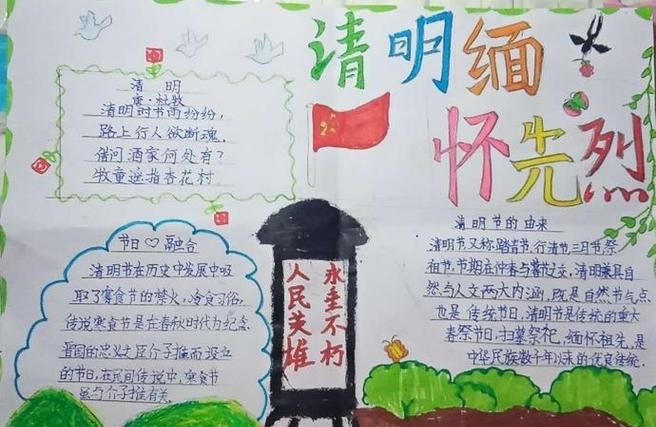 清明缅
怀先烈
清 明
唐·杜牧
清明时节雨纷纷，
路上行人欲断魂。
借问酒家何处有？
牧童遥指杏花村
节日♡融合
清明节在历史中发展中吸
取了寒食节的禁火，冷食习俗，
传说寒食节是在春秋时代为纪念
晋国的忠义文臣介子推而设立
的节日，在民间传说中，寒食节
与介子推有关。
人民英雄
永垂不朽
清明节的由来
清明节又称踏青节、行清节、三月节、祭
祖节，节期在仲春与暮春之交，清明兼具自
然与人文两大内涵，既是自然节气点
也是传统节日，清明节是传统的重大
春祭节日，扫墓祭祀，缅怀祖先，是
中华民族数千年以来的优良传统。